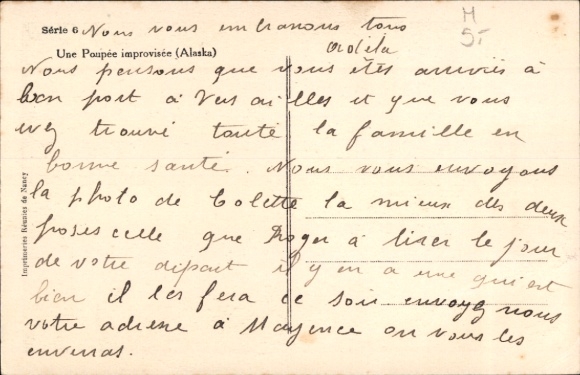 Série 6
Nous vous embrassons tous
Odila
M
5-
Une Poupée improvisée (Alaska)
Nous pensons que vous êtes arrivés à
bon port à Versailles et que vous
avez trouvé toute la famille en
bonne santé. Nous vous envoyons
la photo de Colette la mieux des deux
poses celle que Roger à tirer le jour
de votre départ il y en a une qui est
bien il les fera ce soir envoyez nous
votre adresse à Mayence on vous les
enverras.
Imprimeries Réunies de Nancy